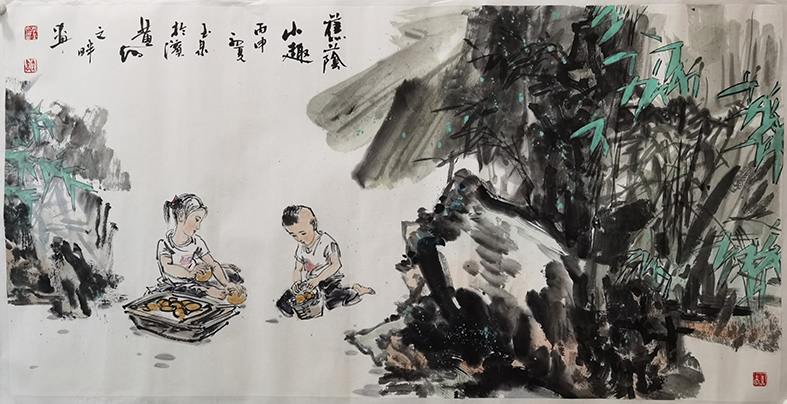 蕉蔭
小趣
丙申
夏
玉泉
於濱
黃河
之畔
画